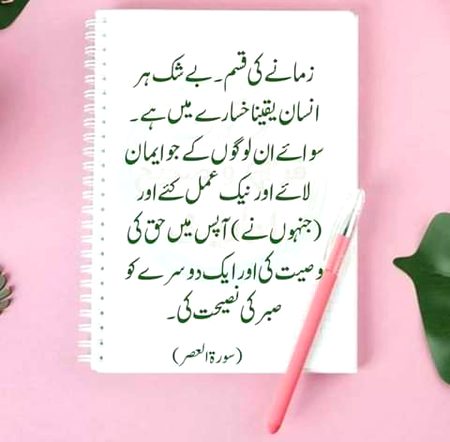 زمانے کی قسم۔ بے شک ہر
انسان یقینا خسارے میں ہے۔
سوائے ان لوگوں کے جو ایمان
لائے اور نیک عمل کئے اور
(جنہوں نے) آپس میں حق کی
وصیت کی اور ایک دوسرے کو
صبر کی نصیحت کی۔
(سورۃ العصر)